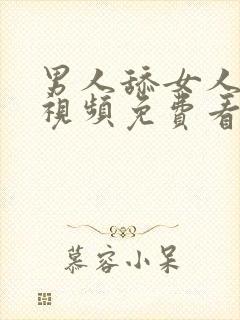 男人舔女人
視頻免費看
慕容小呆